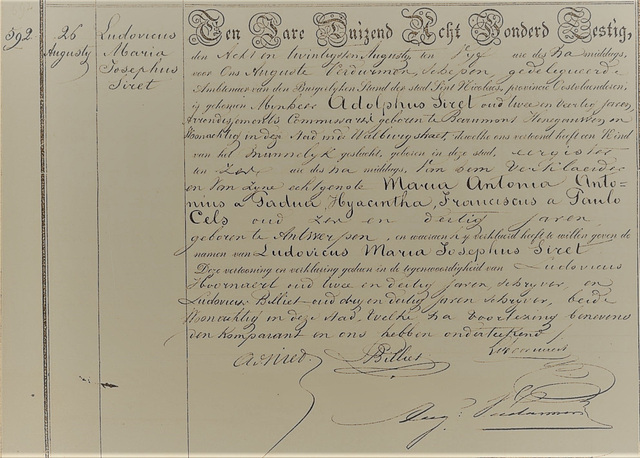 592
26
Augusty
Ludovicus
Maria
Josephus
Siret
Een Jare Duizend Acht Honderd Zestig,
den Acht en twintigsten Augusty ten Vyf ure des na middags,
voor Ons Auguste Verdurmen, Schepen, gedelegueerde
Ambtenaar van den Burgerlyken Stand der stad Sint Nicolaes, provincie Oostvlaanderen,
is gekomen Mynheer Adolphus Siret oud twee en veertig jaren,
Arrondissements Commissaris geboren te Beaumont Henegouwen en
Woonachtig in deze Stad in de Walburgstraet, dewelke ons vertoond heeft een Kind
van het mannelyk geslacht, geboren in deze stad, eergister
ten Zes ure des na middags, Van hem Verklaerder
en Van Zyne echtgenote Maria Antonia, Anto-
nius a Padua, Hyacintha, Franciscus a Paulo
Cels oud zes en dertig jaren
geboren te Antwerpen, en waeraen hy verklaerd heeft te willen geven de
namen van Ludovicus Maria Josephus Siret
Deze vertooning en verklaring gedaen in de tegenwoordigheid van Ludovicus
oud twee en dertig jaren, Schryver, en
Ludovicus Billiet oud dry en dertig jaren Schryver, beide
Woonachtig in deze Stad. Welke na voorlezing benevens
den Komparant en ons hebben onderteekend
Ad Siret. Billiet
Aug. Verdurmen